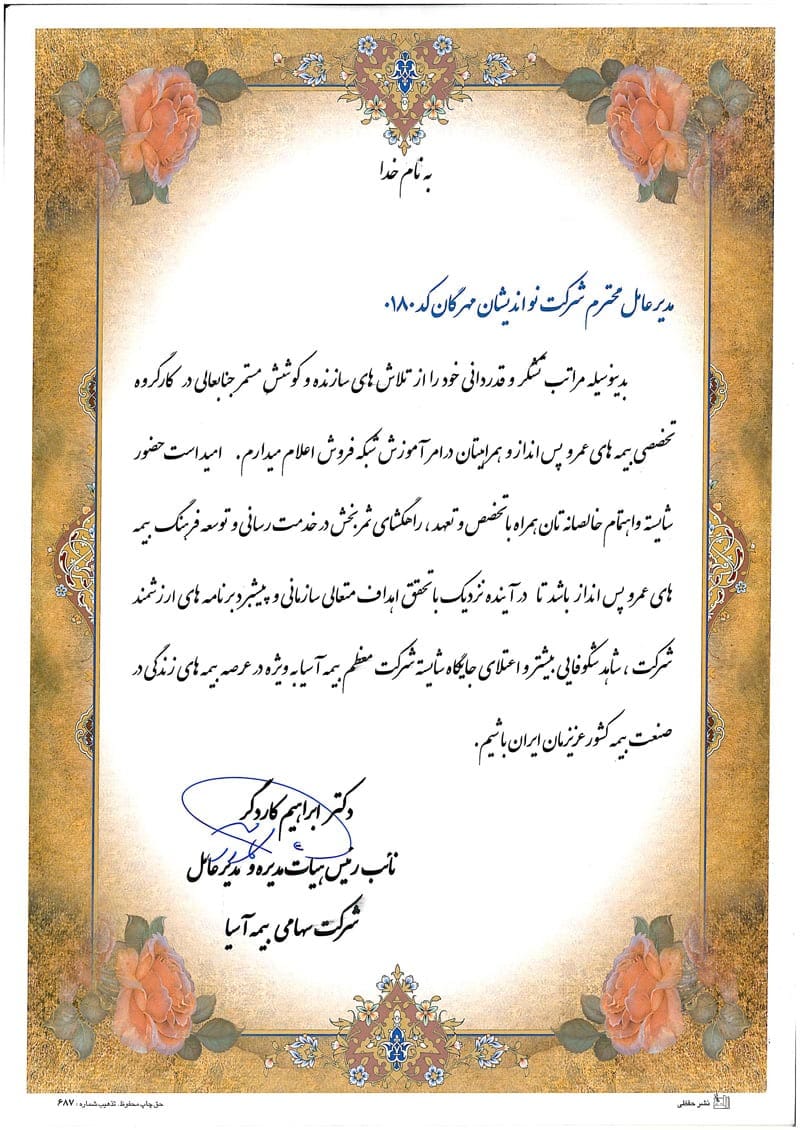 به نام خدا
مدیر عامل محترم شرکت نواندیشان مهرگان کد ۰۱۸۰
بدینوسیله مراتب تشکر و قدردانی خود را از تلاش های سازنده و کوشش مستمر جنابعالی در کارگروه
تخصصی بیمه های عمر و پس انداز و همراهیتان در امر آموزش شبکه فروش اعلام میدارم. امید است حضور
شایسته و اهتمام خالصانه تان همراه با تخصص و تعهد، راهگشای ثمربخش در خدمت رسانی و توسعه فرهنگ بیمه
های عمر و پس انداز باشد تا در آینده نزدیک با تحقق اهداف متعالی سازمانی و پیشبرد برنامه های ارزشمند
شرکت، شاهد شکوفایی بیشتر و اعتلای جایگاه شایسته شرکت معظم بیمه آسیا به ویژه در عرصه بیمه های زندگی در
صنعت بیمه کشور عزیزمان ایران باشیم.
دکتر ابراهیم کاردگر
نائب رئیس هیات مدیره و مدیر عامل
شرکت سهامی بیمه آسیا
نشر حفظی
حق چاپ محفوظ. تذهیب شماره: ۶۸۷